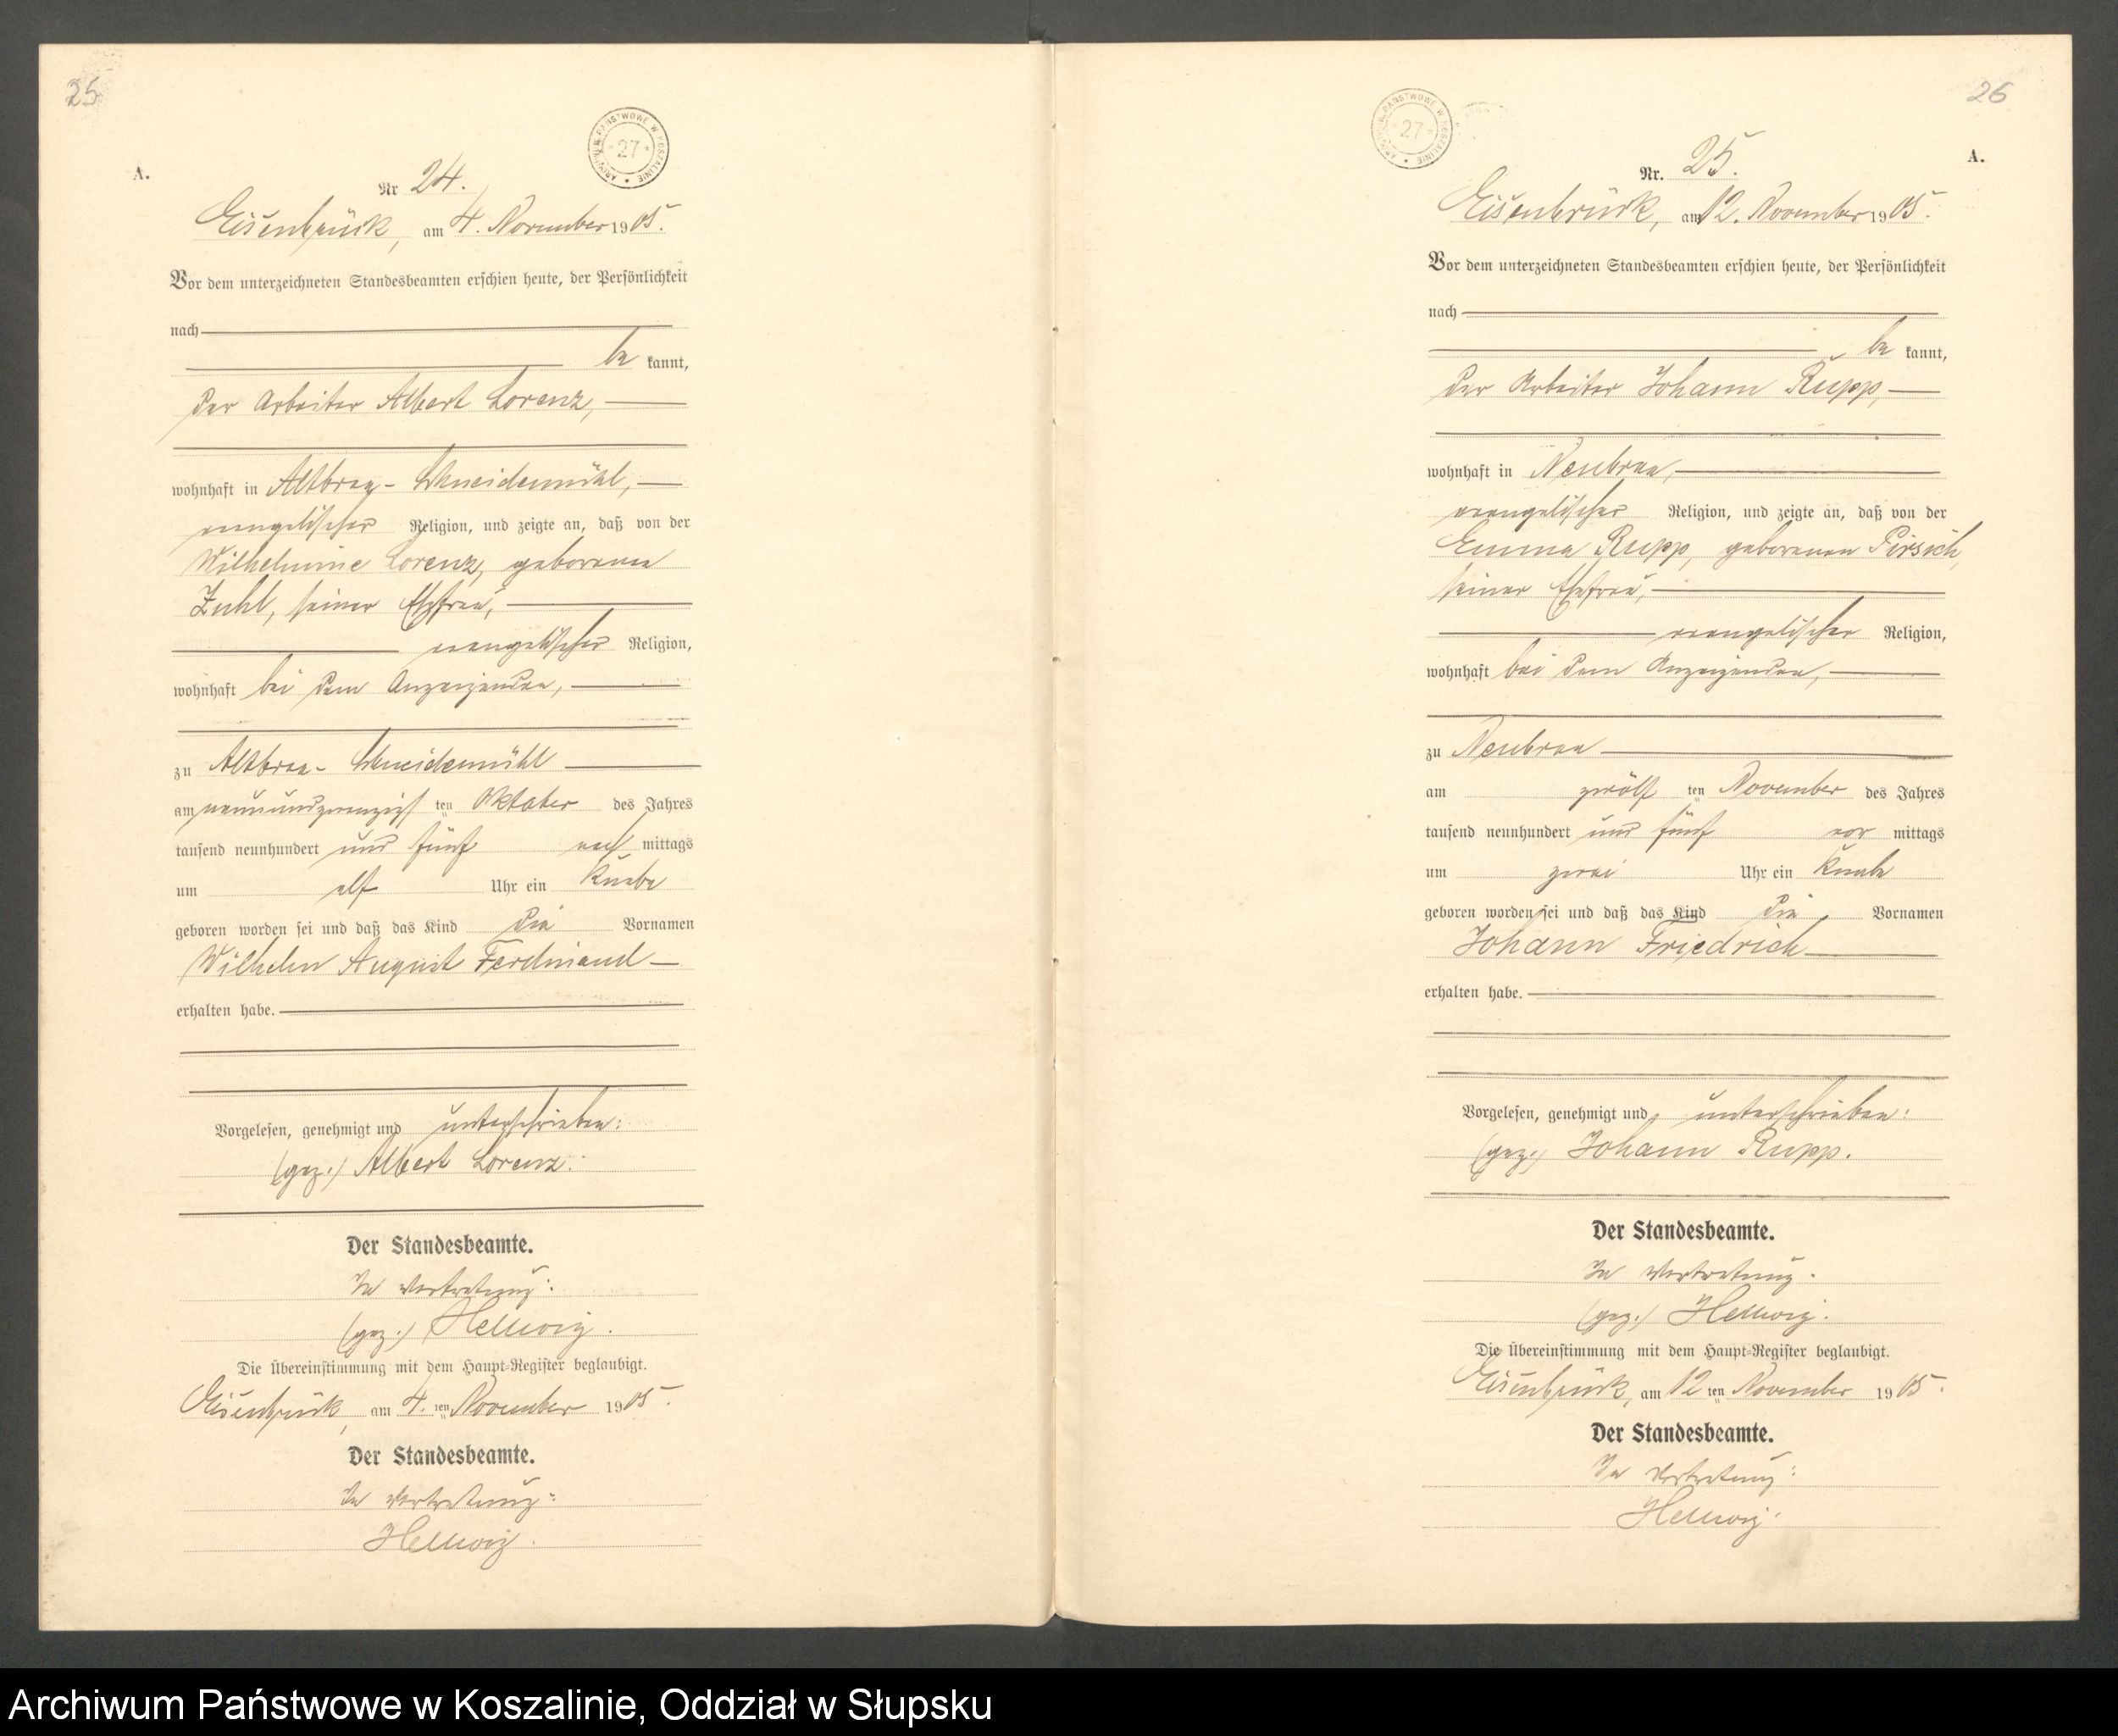 25
ARCHIWUM PAŃSTWOWE W KOSZALINIE
* 27 *
A.
Nr 24.
Eisenbrück, am 4. November 1905.
Vor dem unterzeichneten Standesbeamten erschien heute, der Persönlichkeit
nach
be kannt,
der Arbeiter Albert Lorenz,
wohnhaft in Altbraa-Schneidemühl,
evangelischer Religion, und zeigte an, daß von der
Wilhelmine Lorenz, geborenen
Zuhl, seiner Ehefrau,
evangelischer Religion,
wohnhaft bei dem Anzeigenden,
zu Altbraa-Schneidemühl
am neunundzwanzigsten Oktober des Jahres
tausend neunhundert und fünf nach mittags
um elf Uhr ein Knabe
geboren worden sei und daß das Kind die Vornamen
Wilhelm August Ferdinand
erhalten habe.
Vorgelesen, genehmigt und unterschrieben:
(gez.) Albert Lorenz.
Der Standesbeamte.
In Vertretung:
(gez.) Hellwig.
Die Übereinstimmung mit dem Haupt-Register beglaubigt.
Eisenbrück, am 4. ten November 1905.
Der Standesbeamte.
In Vertretung:
Hellwig.
26
ARCHIWUM PAŃSTWOWE W KOSZALINIE
* 27 *
A.
Nr. 25.
Eisenbrück, am 12. November 1905.
Vor dem unterzeichneten Standesbeamten erschien heute, der Persönlichkeit
nach
be kannt,
der Arbeiter Johann Rupp,
wohnhaft in Neubraa,
evangelischer Religion, und zeigte an, daß von der
Emma Rupp, geborenen Pirsich,
seiner Ehefrau,
evangelischer Religion,
wohnhaft bei dem Anzeigenden,
zu Neubraa
am zwölf ten November des Jahres
tausend neunhundert und fünf vor mittags
um zwei Uhr ein Knabe
geboren worden sei und daß das Kind die Vornamen
Johann Friedrich
erhalten habe.
Vorgelesen, genehmigt und unterschrieben:
(gez.) Johann Rupp.
Der Standesbeamte.
In Vertretung.
(gez.) Hellwig.
Die Übereinstimmung mit dem Haupt-Register beglaubigt.
Eisenbrück, am 12 ten November 1905.
Der Standesbeamte.
In Vertretung:
Hellwig.
Archiwum Państwowe w Koszalinie, Oddział w Słupsku